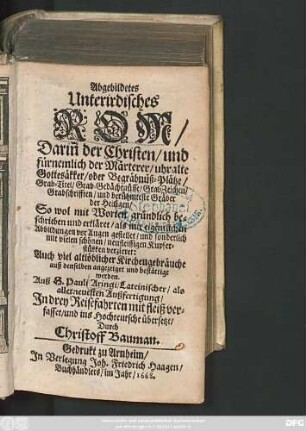 Abgebildetes
Unterirdisches
ROM/
Dariñ der Christen/ und
fürnemlich der Märterer/ uhralte
Gottsäkker/ oder Begräbnüß-Plätze/
Grab-Titel/ Grab-Gedächtnüsse/ Grab-Zeichen/
Grabschrifften/ und berühmteste Gräber
der Heiligen/
So wol mit Worten gründlich be-
schrieben und erkläret/ als mit eigentlichen
Abbildungen vor Augen gestellet/ und sonderlich
mit vielen schönen/ Kupfer-
stükken verzieret:
Auch viel altlöblicher Kirchengebräuche
auß denselben angezeiget und bestätiget
werden.
Auß S. Pauli Aringi Lateinischer/ als
allerneuesten Außfertigung/
In drey Reisefahrten mit fleiß ver-
fasset/ und ins Hochteutsche übersetzt/
Durch
Christoff Bauman.
Gedrukt zu Arnheim/
In Verlegung Joh. Friedrich Haagen/
Buchhändlers/ im Jahr/ 1668.